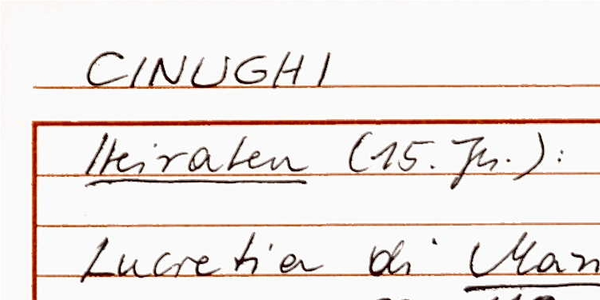 CINUGHI
Heiraten (15. Jh.):
Lucretia di